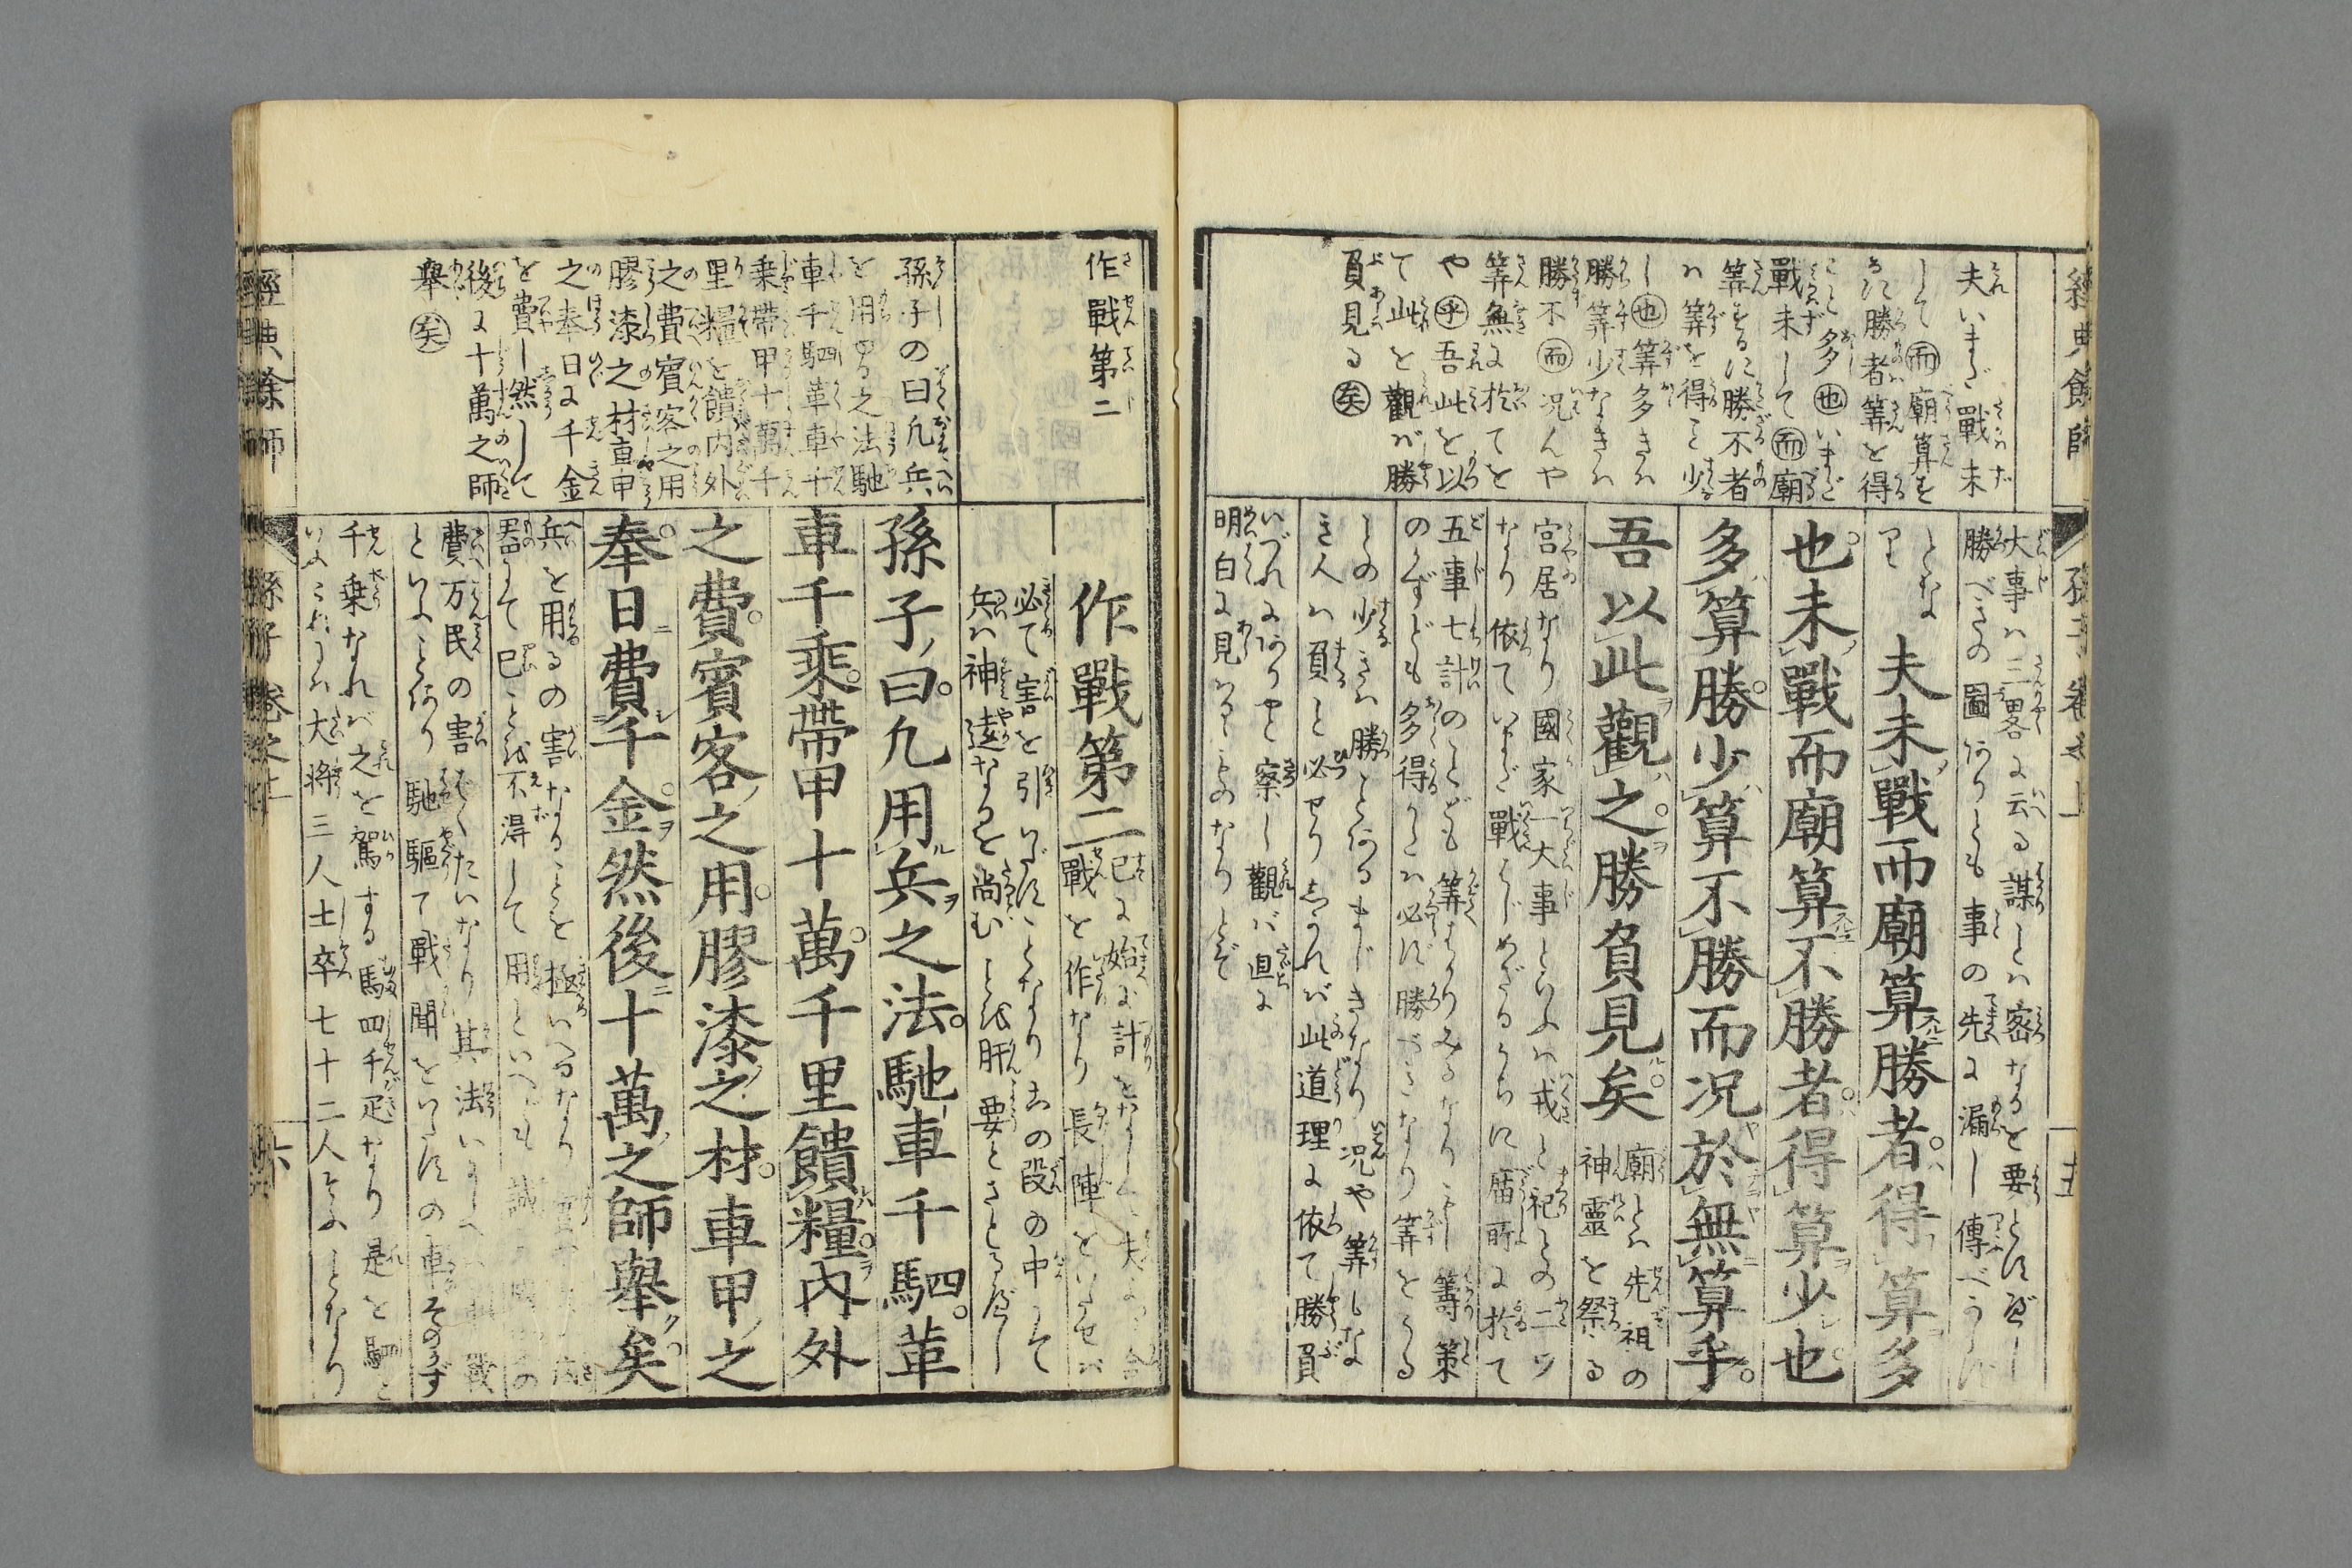 經典餘師
孫子卷之上
五
夫いまだ戰未
して而廟算を
るに勝者筭を得
こと多し也いまだ
戰未して而廟
筭するに勝不者
ハ筭を得こと少
し也筭多きハ
勝筭少なきハ
勝不而况んや
筭無に於てを
や乎吾此を以
て此を觀バ勝
負見る矣
大事ハ三畧に云る謀とハ密なるを要とす
勝べきの圖ありとも事の先に漏し傳べからず
となり
夫未戰而廟算勝者得算多
也未戰而廟算不勝者得算少也
多算勝少算不勝而况於無算乎
吾以此觀之勝負見矣
廟とハ先祖の
神靈を祭る
宮居なり國家一大事といふハ戎と祀との二ツ
なり依ていまだ戰はじめざるうちに廟所に於て
五事七計のことども筭はかりみるなり
籌策
のかずども多得るハ必に勝べきなり筭をうる
の少きハ勝ことあるまじきなり况や筭しな
き人ハ負と必せり
此道理に依て勝負
いづれにありやと察し觀バ直に
明白に見ゆるものなりとぞ
作戰第二
孫子の曰凡兵
を用るの之法馳
車千駟革車千
乗帶甲十萬千
里糧を饋内外
之費賓客之用
膠漆之材車甲
之奉日に千金
を費し然して
後に十萬之師
舉矣
作戰第二
已に始に計をなして
戰を作なり長陣を
必て害を引いだすことなりこの段の中して
兵ハ神速なるを尚む
肝要とさとるべし
孫子曰凡用兵之法馳車千駟革
車千乘帶甲十萬千里饋糧內外
之費賓客之用膠漆之材車甲之
奉日費千金然後十萬之師舉矣
兵を用るの害なることを極いへるなり
器にて已ことを不得して用といへども
費万民の害はくたいなり其法
といふことあり馳驅て戰聞をいたすの車その
千乗なれバ之を駕する駿四千疋なり是を駟と
いふこれらハ大将三人士卒七十二人そふとなり
經典餘師
孫子卷之上
六